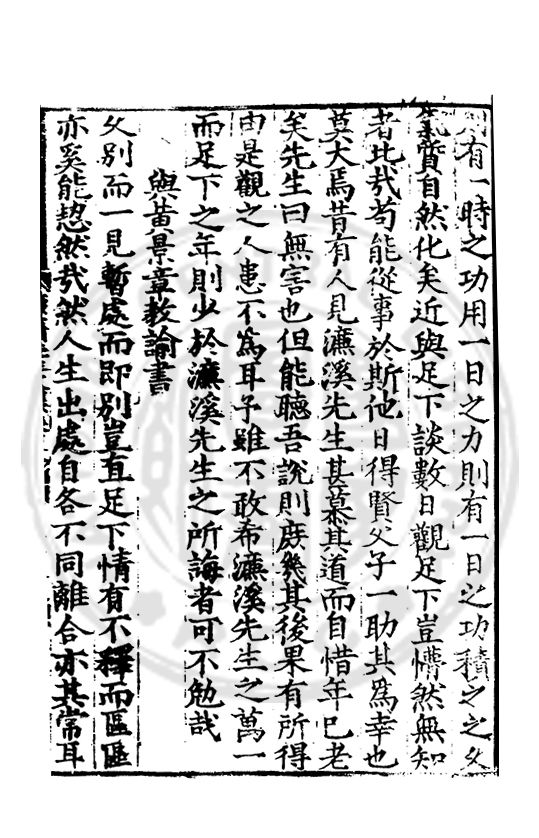 則有一時之功用一日之力則有一日之功積之之久
氣質自然化矣近與足下談數日觀足下豈懵然無知
者比哉苟能從事於斯他日得賢父子一助其爲幸也
莫大焉昔有人見濂溪先生甚慕其道而自惜年已老
矣先生曰無害也但能聽吾說則庶幾其後果有所得
由是觀之人患不爲耳予雖不敢希濂溪先生之萬一
而足下之年則少於濂溪先生之所誨者可不勉哉
與黃景章教諭書
久別而一見暫處而即別豈直足下情有不釋而區區
亦奚能恝然哉然人生出處自各不同離合亦其常耳